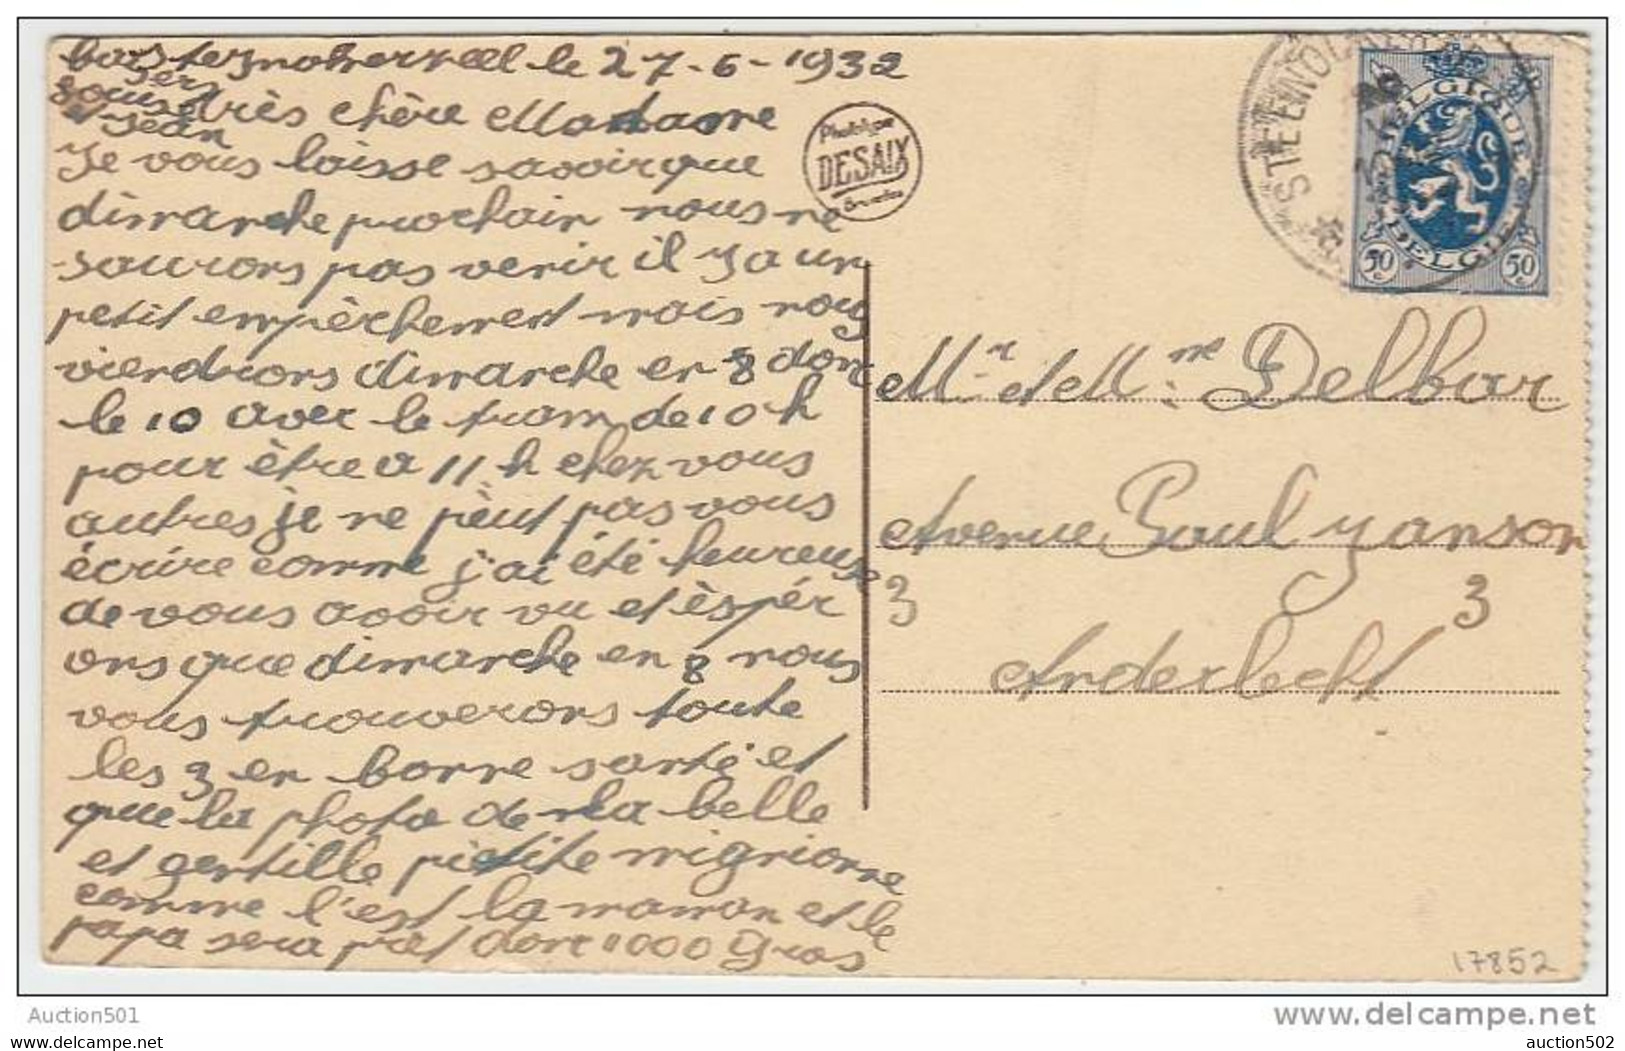 le 27-6-1932
très chère Madame
Jean
Je vous laisse savoir que
dimanche prochain nous ne
saurons pas venir il y a un
petit empèchement mais nous
viendrons dimanche en 8 donc
le 10 avec le tram de 10 h
pour être a 11 h chez vous
autres je ne pèut pas vous
écrire comme j'ai été heureuse
de vous avoir vu et èspér
ons que dimanche en 8 nous
vous trouverons toute
les 3 en bonne santé et
que la photo de la belle
et gentille pètite mignionne
comme l'est la maman et le
papa sera prêt donc 1000 Gros
Phototypie
DESAIX
Bruxelles
STEENOCK
BELGIQUE
BELGIË
50 c
50 c
Mr et Mme Delbar
Avenue Paul Yanson
3 3
Anderlecht
17852
Auction501
delcampe.net
auction502
auction502